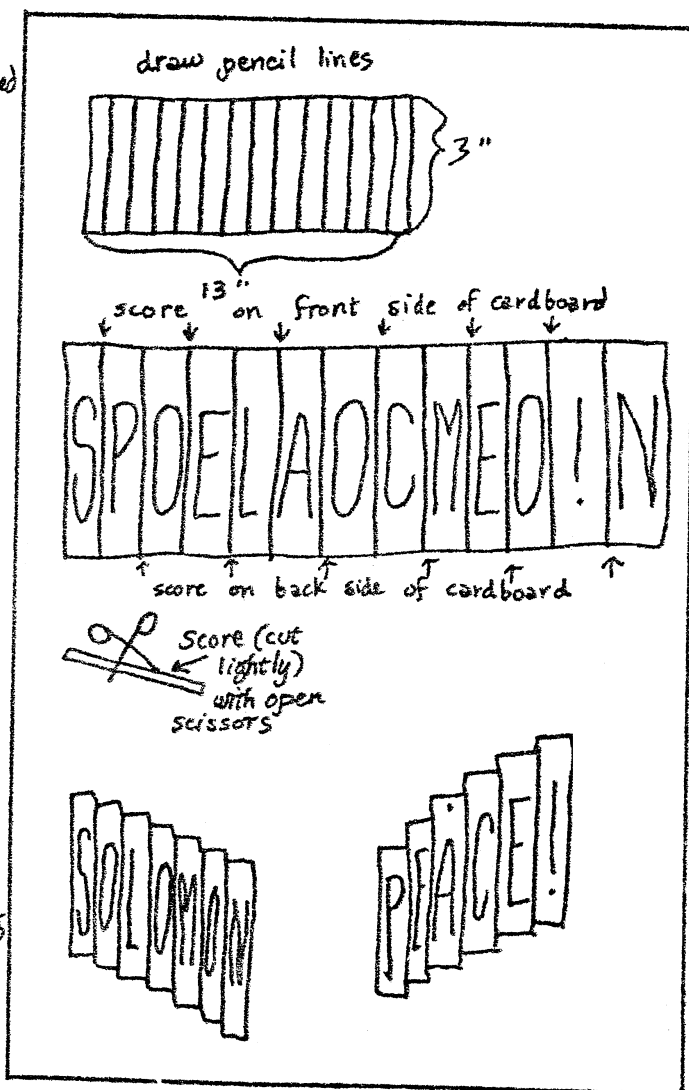 ed
draw pencil lines
3"
13"
score on front side of cardboard
SPOELAOCMEO!N
score on back side of cardboard
Score (cut
lightly)
with open
scissors
SOLOMON
PEACE!